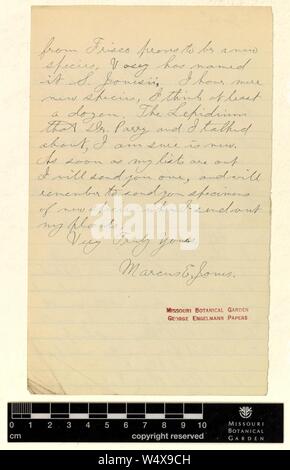 from Frisco proves to be a new
species, Vasey has named
it S. Jonesii. I have more
new species, I think at least
a dozen. The Lepidium
that Dr. Parry and I talked
about, I am sure is new.
As soon as my lists are out
I will send you one, and will
remember to send you specimens
of new when I send out
my plants.
Very Truly Yours
Marcus E. Jones.
MISSOURI BOTANICAL GARDEN
GEORGE ENGELMANN PAPERS
alamy
0 1 2 3 4 5 6 7 8 9 10
cm copyright reserved
MISSOURI
BOTANICAL
GARDEN
alamy
W4X9CH